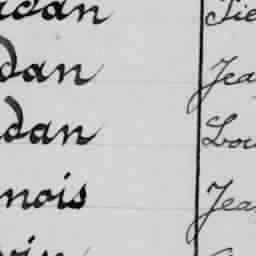 dan Pie
dan Jea
dan Lou
nois Jea